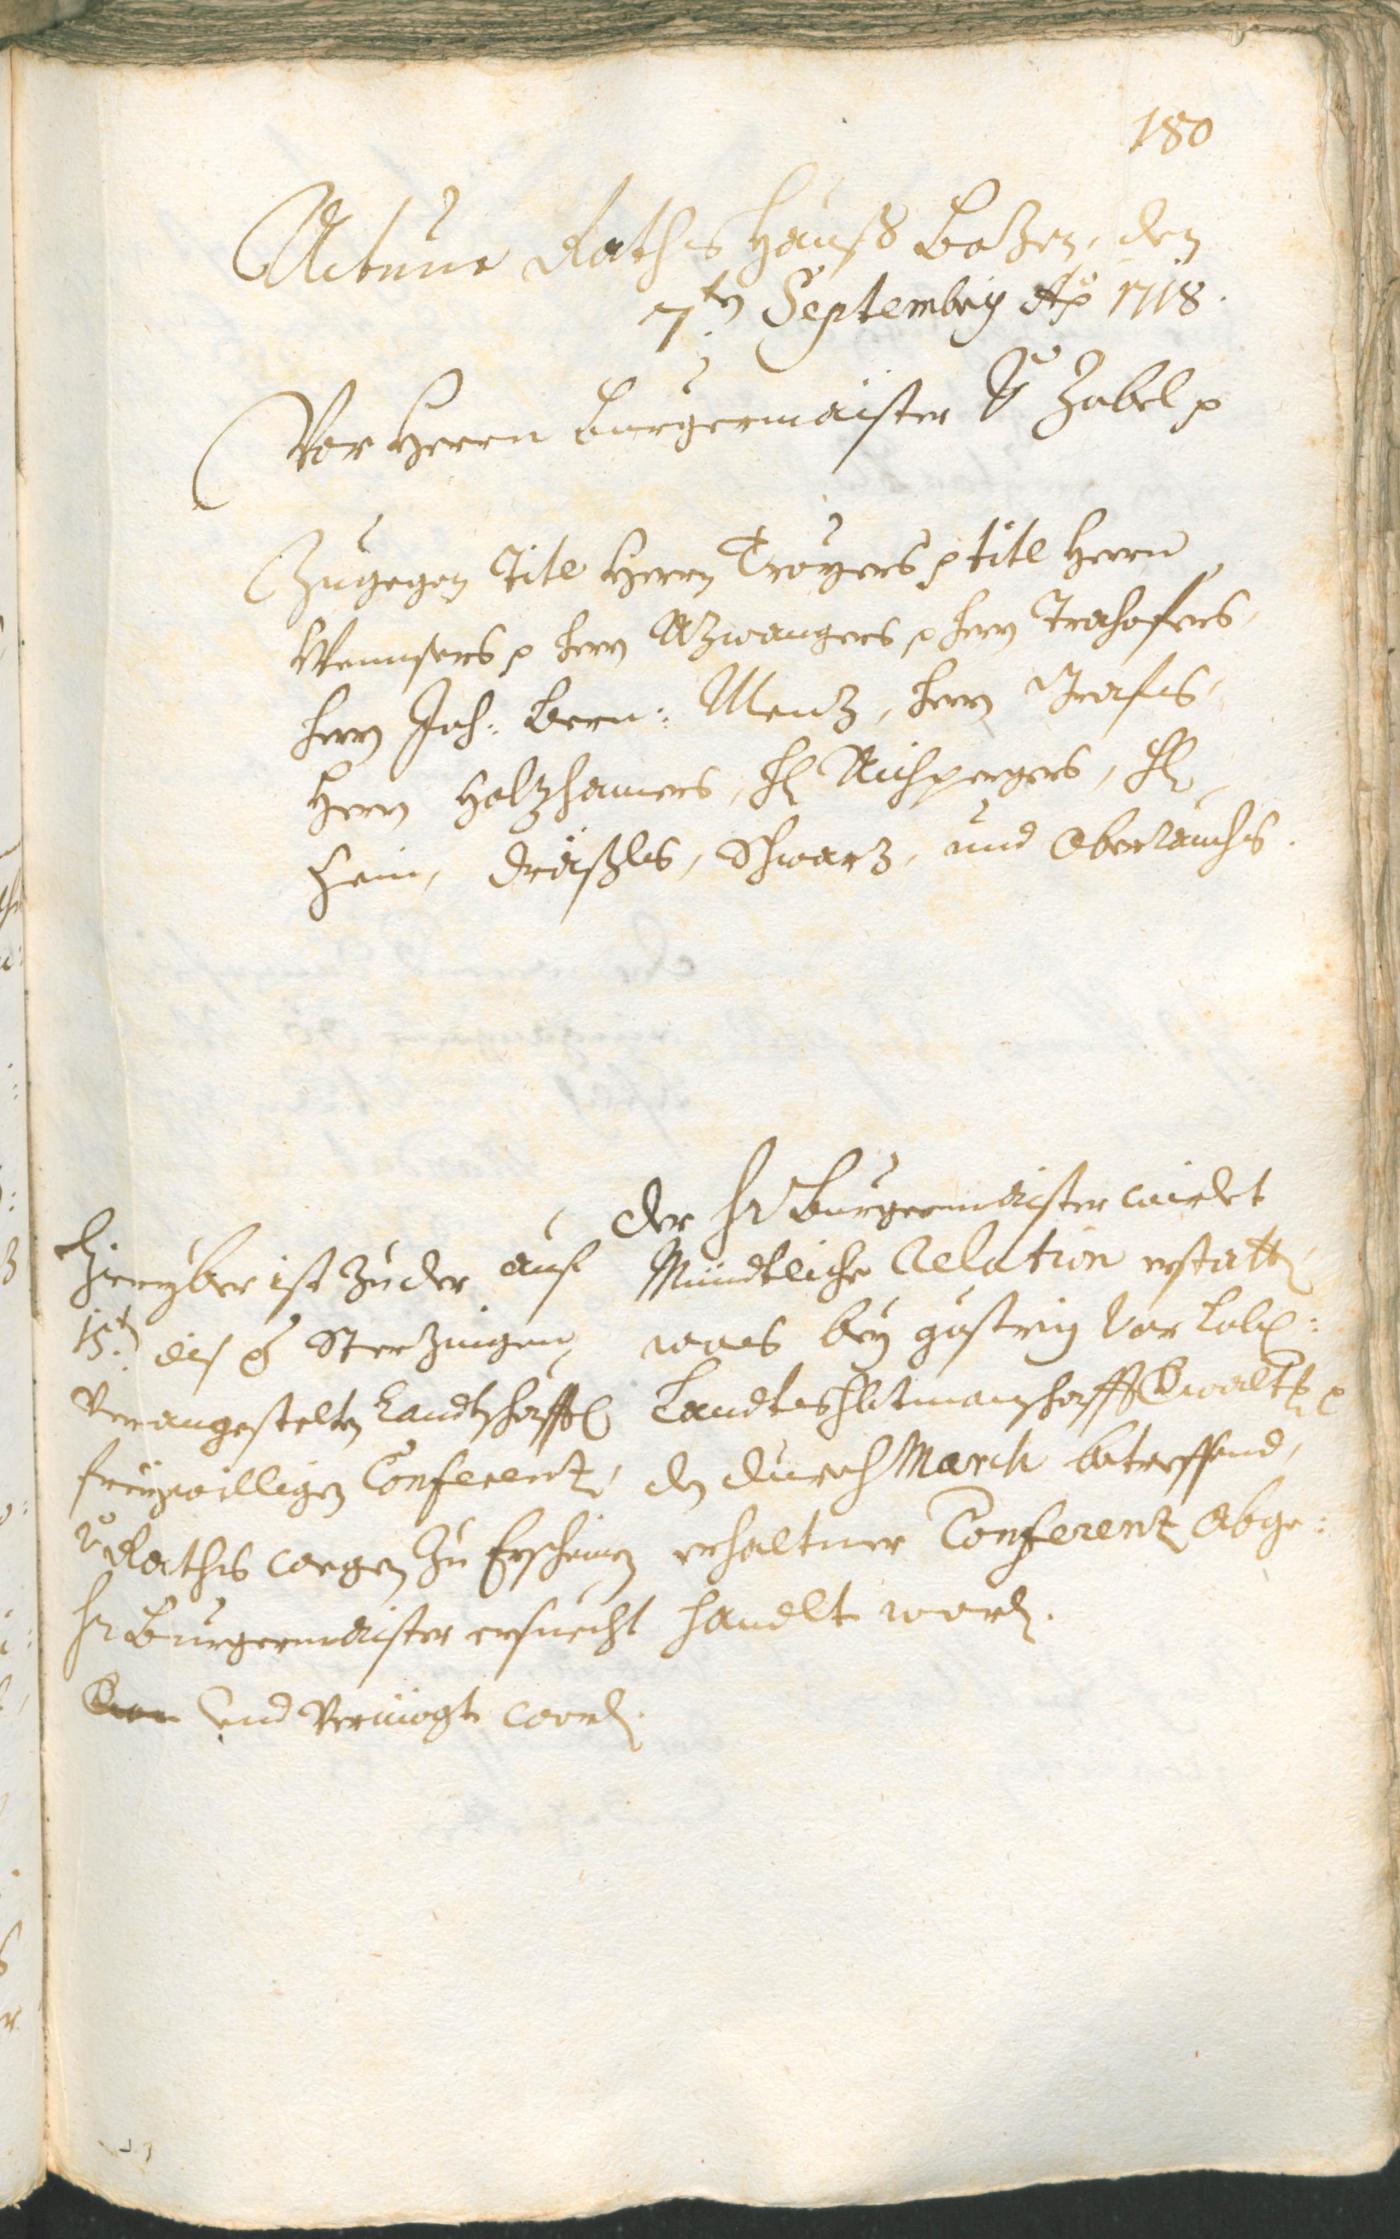 180
Actum Raths Hauß Bozen, den
7ten Septembris Ao 1718.
Vor Herrn Burgermaister Zobel p
Zugegen Titl Herrn Troyers p titl Herrn
Wensers p herrn Azwangers p herrn Trahofers,
herrn Joh: Bern: Menz, herrn Grafns,
Herrn Holzhamers, H Aichpergers, H
Hein, Dräxls, Schwarz, und Oberrauchs.
Der Hr Burgermaister wirdet
Mündtliche Relation erstattn
was bey gestrig vor Lobl:
Landtshbtmanschafft Gwalt p
den durch March betreffend,
erhaltner Conferenz abge:
handlt wordn.
Hieryber ist zu der auf
15tn dis zu Sterzingen
verangestelten Landtschafftl
freywilligen Conferenz,
Raths wegen zu Erscheinen
Hr Burgermaister ersuecht
und vermögt wordn.